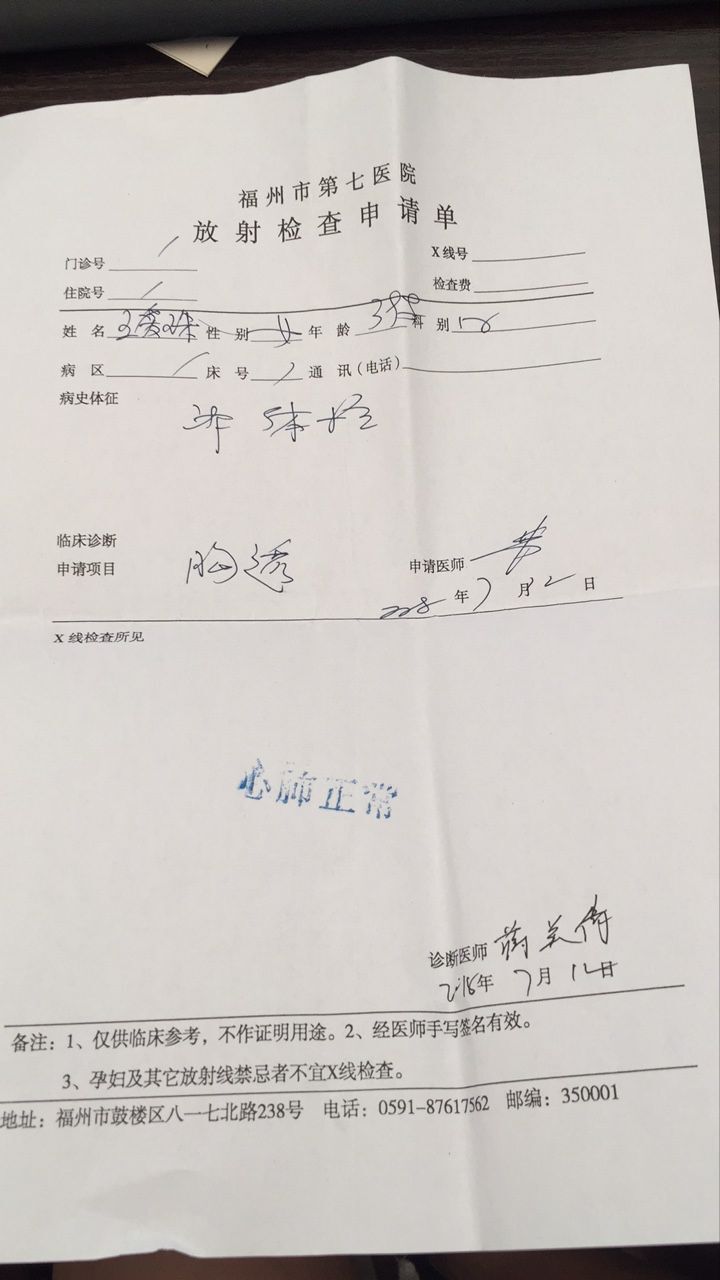 福州市第七医院
放射检查申请单
门诊号 / X线号
住院号 / 检查费
姓名 性别 女 年龄 科别
病区 / 床号 / 通讯(电话)
病史体征
体检
临床诊断
申请项目 胸透 申请医师
年7月12日
X线检查所见
心肺正常
诊断医师
2018年7月12日
备注：1、仅供临床参考，不作证明用途。2、经医师手写签名有效。
3、孕妇及其它放射线禁忌者不宜X线检查。
地址：福州市鼓楼区八一七北路238号 电话：0591-87617562 邮编：350001